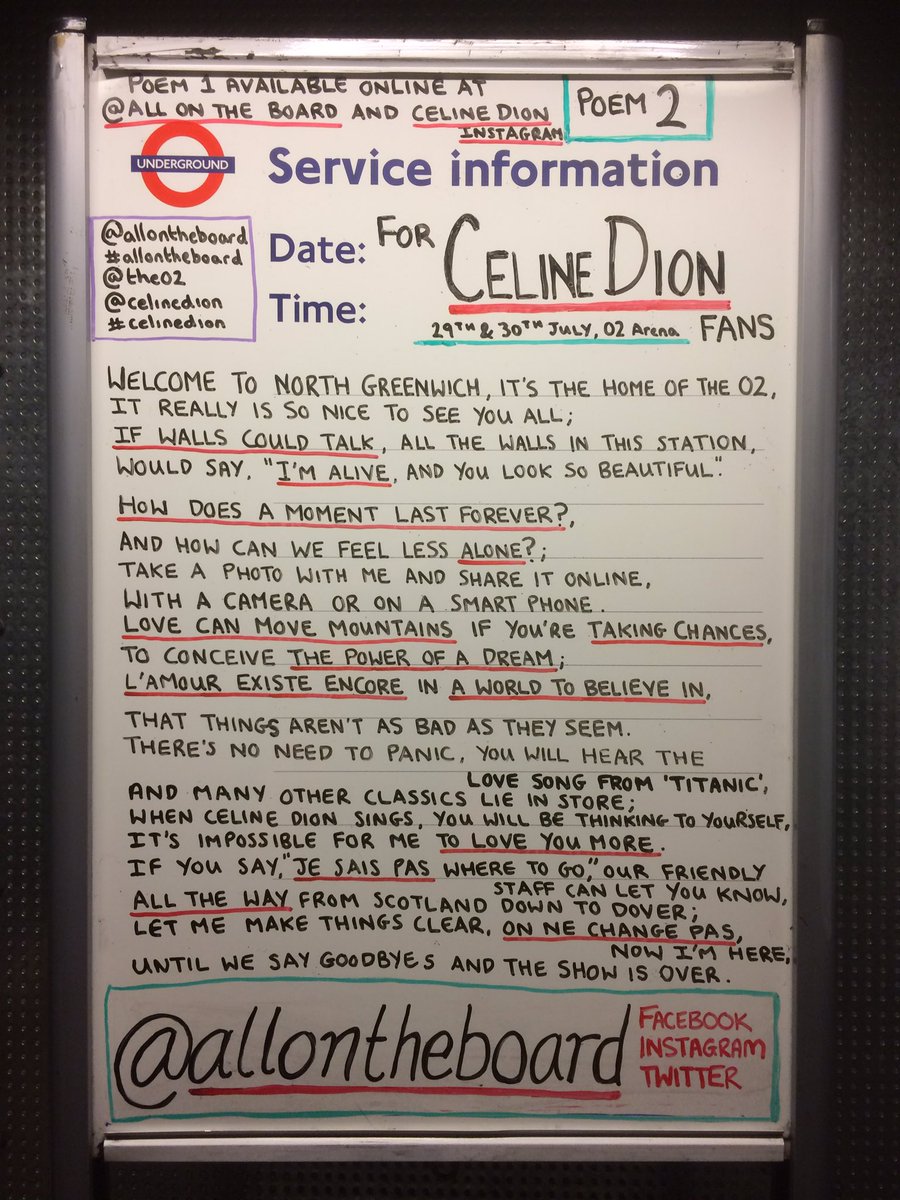 POEM 1 AVAILABLE ONLINE AT
@ALL ON THE BOARD AND CELINE DION
INSTAGRAM
POEM 2
UNDERGROUND
Service information
@allontheboard
#allontheboard
@the02
@celinedion
#celinedion
Date:
Time:
FOR CELINE DION
29TH & 30TH JULY, 02 Arena FANS
WELCOME TO NORTH GREENWICH, IT'S THE HOME OF THE 02,
IT REALLY IS SO NICE TO SEE YOU ALL;
IF WALLS COULD TALK, ALL THE WALLS IN THIS STATION,
WOULD SAY, "I'M ALIVE, AND YOU LOOK SO BEAUTIFUL".
HOW DOES A MOMENT LAST FOREVER?,
AND HOW CAN WE FEEL LESS ALONE?;
TAKE A PHOTO WITH ME AND SHARE IT ONLINE,
WITH A CAMERA OR ON A SMART PHONE.
LOVE CAN MOVE MOUNTAINS IF YOU'RE TAKING CHANCES,
TO CONCEIVE THE POWER OF A DREAM;
L'AMOUR EXISTE ENCORE IN A WORLD TO BELIEVE IN,
THAT THINGS AREN'T AS BAD AS THEY SEEM.
THERE'S NO NEED TO PANIC, YOU WILL HEAR THE
LOVE SONG FROM 'TITANIC',
AND MANY OTHER CLASSICS LIE IN STORE;
WHEN CELINE DION SINGS, YOU WILL BE THINKING TO YOURSELF,
IT'S IMPOSSIBLE FOR ME TO LOVE YOU MORE.
IF YOU SAY, "JE SAIS PAS WHERE TO GO", OUR FRIENDLY
STAFF CAN LET YOU KNOW,
ALL THE WAY FROM SCOTLAND DOWN TO DOVER;
LET ME MAKE THINGS CLEAR, ON NE CHANGE PAS,
NOW I'M HERE,
UNTIL WE SAY GOODBYES AND THE SHOW IS OVER.
@allontheboard
FACEBOOK
INSTAGRAM
TWITTER